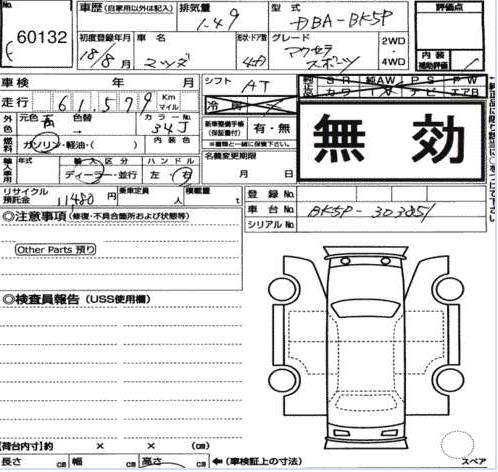 No.
60132
車歴 (自家用以外は記入)
排気量
1.49
型式
DBA-BK5P
評価点
初度登録年月
18/8月
車名
マツダ
形状・ドア数
4ボ
グレード
アクセラ
スポーツ
2WD
・
4WD
内装
補助評価
車検 年 月
シフト AT
純正
S R 純AW P S P W
カワ TV ナビ エアB
走行 61,579 Km
マイル
冷房
外色
元色 色替
→
カラーNo.
34J
内装色
新車整備手帳
(保証書付)
有・無
※書類と一緒に保管下さい。
無効
燃料
ガソリン・軽油・( )
名義変更期限
月 日
輸入車用
年式
輸入区分
ディーラー・並行
ハンドル
左・右
リサイクル
預託金
11480円
乗車定員
人
積載量
t
登録No.
車台No. BK5P-303851
シリアルNo.
◎注意事項 (修復・不具合箇所および状態等)
Other Parts 預り
◎検査員報告 (USS使用欄)
【荷台内寸】約 × × (cm)
長さ cm 幅 cm 高さ cm ←(車検証上の寸法)
スペア